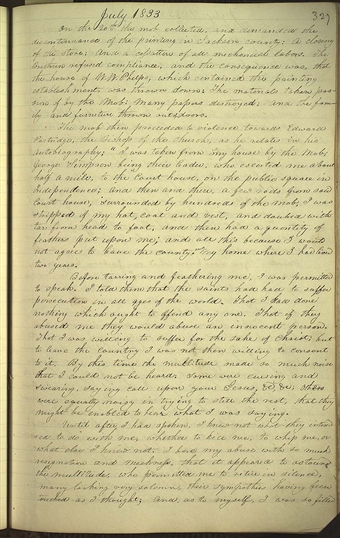 July 1833
327
On the 20th the mob collected, and demanded the
discontinuance of the printing in Jackson county; a closing
of the store; and a cessation of all mechanical labors. The
brethren refused compliance, and the consequence was that
the house of W. W. Phelps, which contained the printing
establishment, was thrown down; the materials taken posses-
sion of by the mob; many papers destroyed; and the fami-
ly and furniture thrown outdoors.
The mob then proceeded to violence towards Edward
Partridge, the bishop of the church, as he relates in his
autobiography; "I was taken from my house by the mob,
George Simpson being their leader, who escorted me about
half a mile, to the court house, on the public square in
Independence; and then and there, a few rods from said
court house, surrounded by hundreds of the mob, I was
stripped of my hat, coat and vest, and daubed with
tar from head to foot, and then had a quantity of
feathers put upon me; and all this because I would
not agree to leave the county, my home where I had lived
two years.
Before tarring and feathering me, I was permitted
to speak. I told them that the saints had had to suffer
persecution in all ages of the world. That I had done
nothing which ought to offend any one. That if they
abused me they would abuse an innocent person.
That I was willing to suffer for the sake of Christ; but
to leave the country I was not then willing to consent
to it. By this time the multitude made so much noise
that I could not be heard: some were cursing and
swearing, saying call upon your Jesus, &c. &c. others
were equally noisy in trying to still the rest, that they
might be enabled to hear what I was saying.
Until after I had spoken, I knew not what they inten-
ded to do with me, whether to kill me, to whip me, or
what else I knew not. I bore my abuse with so much
resignation and meekness, that it appeared to astound
the multitude, who permitted me to retire in silence,
many looking very solemn, their sympathies having been
touched as I thought; and, as to myself, I was so filled